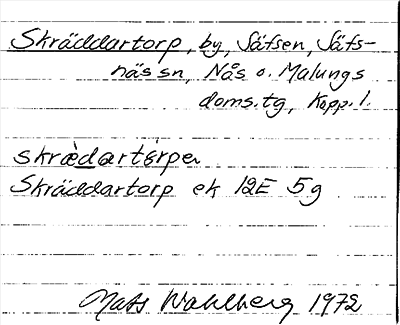 Skräddartorp, by, Säfsen, Säfs-
näs sn, Nås o. Malungs
doms.tg, Kopp. l.
skrædartòrpen
Skräddartorp ek 12E 5g
Mats Wahlberg 1972